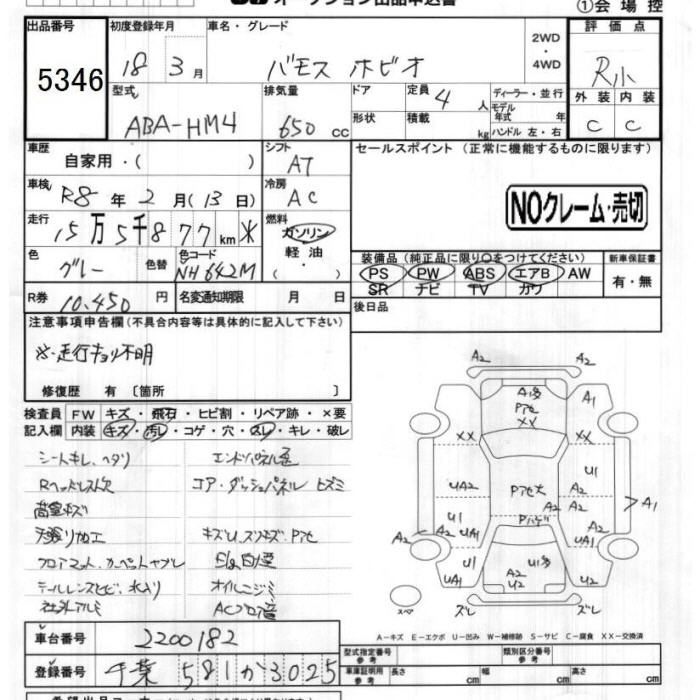 オークション出品申込書
①会場控
出品番号 初度登録年月 車名・グレード 2WD ・ 4WD 評価点
5346 18年 3月 バモス ホビオ R小
型式 排気量 ドア 定員 4人 ディーラー・並行 外装 内装
ABA-HM4 650cc 形状 積載 kg モデル年式 年 ハンドル 左・右 C C
車歴 自家用・( ) シフト AT セールスポイント (正常に機能するものに限ります)
車検 R8年 2月 (13日) 冷房 AC
NOクレーム・売切
走行 15万5千877km ※ 燃料 ガソリン 軽油 ( ・ )
色 グレー 色替 色コード NH642M
装備品 (純正品に限り○をつけてください) 新車保証書
PS PW ABS エアB AW 有・無
SR ナビ TV カワ
R券 10,450円 名変通知期限 月 日 後日品
注意事項申告欄 (不具合内容等は具体的に記入して下さい)
※走行キョリ不明
修復歴 有 〔箇所 〕
検査員 FW キズ・飛石・ヒビ割・リペア跡・×要
記入欄 内装 キズ・汚レ・コゲ・穴・スレ・キレ・破レ
シートキレ、ヘタリ エンドパネル歪
Rヘッドレスト欠 コア・ダッシュパネル ヒズミ
荷室キズ
天張り加工 キズU、スリキズ、Pアセ
フロアマット、カーペットヤブレ
テールレンズヒビ、水入り オイルニジミ
社外アルミ ACプロ音
A2 A2
A1多 Pアセ XX A1
XX XX
UA2 U1 Pアセ大 U1 A2 A2
A2 A2 UA1 Pハゲ A2 U1 A1
UA1 A2 U2 U1多 UA1
スペア ズレ ズレ
A-キズ E-エクボ U-凹み W-補修跡 S-サビ C-腐食 XX-交換済
車台番号 2200182
型式指定番号 参考 類別区分番号 参考
登録番号 千葉 581 か 3025
車庫証明用 参考 長さ cm 幅 cm 高さ cm